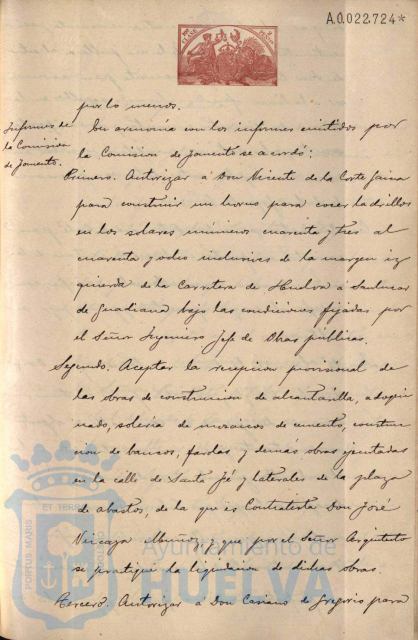 A.0.022.724*
por lo menos.
Informes de
la Comisión
de Fomento.
En armonía con los informes emitidos por
la Comision de Fomento se acordó:
Primero. Autorizar á Don Vicente de la Corte
para construir un horno para cocer ladrillos
en los solares números cuarenta y tres al
cuarenta y ocho inclusives de la margen iz
quierda de la Carretera de Huelva a Sanlucar
de Guadiana bajo las condiciones fijadas por
el Señor Ingeniero Jefe de Obras públicas.
Segundo. Aceptar la recepcion provisional de
las obras de construccion de alcantarilla, adoqui
nado, solería de mosaicos de cemento, construc
cion de bancos, fardas y demás obras ejecutadas
en la calle de Santa Fé y laterales de la plaza
de abastos, de la que es Contratista Don José
Vizcaya Muñoz, y que por el Señor Arquitecto
se practique la liquidacion de dichas obras.
Tercero. Autorizar á Don Casiano de Gregorio para
PORTUS MARIS
ET TERRAE
Ayuntamiento de
HUELVA